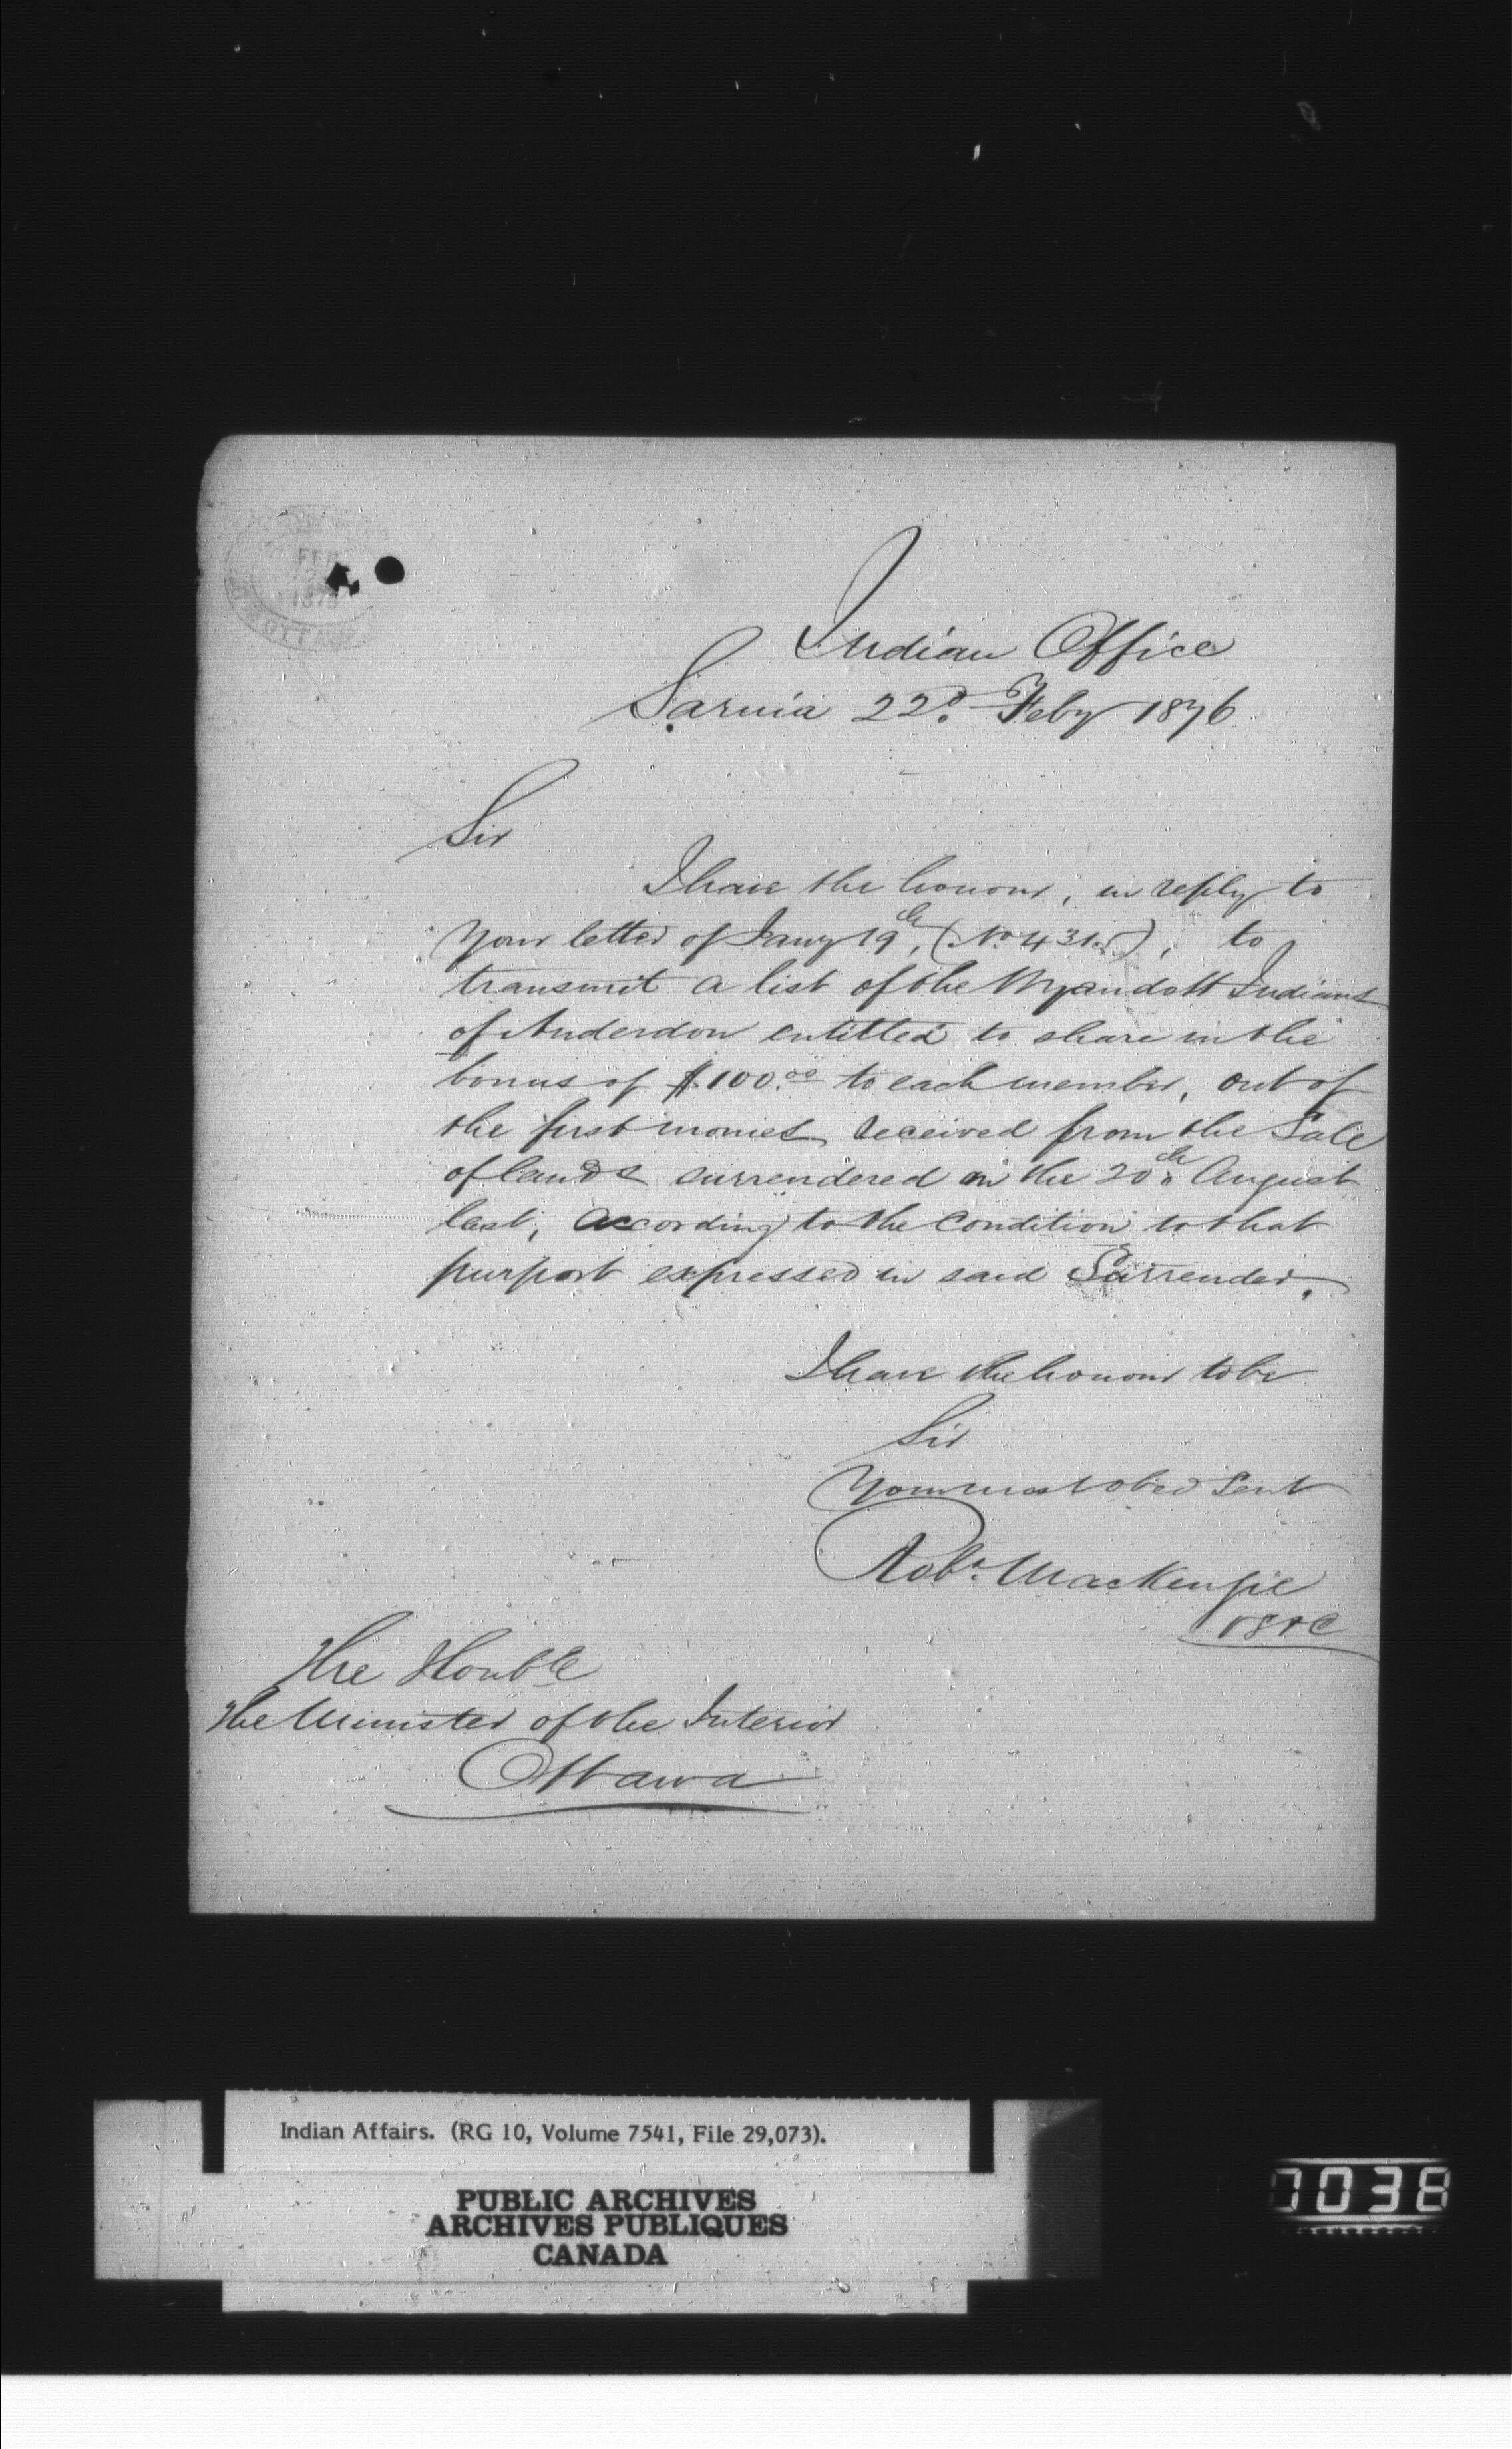 FEB
1876
OTTAWA
Indian Office
Sarnia 22d Feby 1876
Sir
I have the honour, in reply to
your letter of Jany 19th, (No 431.), to
transmit a list of the Wyandott Indians
of Anderdon entitled to share in the
bonus of $100.00 to each member, out of
the first monies received from the Sale
of lands surrendered on the 20th August
last, according to the condition to that
purport expressed in said Surrender.
I have the honour to be
Sir
Your most obed Servt
Robt. MacKenzie
The Honble
The Minister of the Interior
Ottawa
Indian Affairs. (RG 10, Volume 7541, File 29,073).
PUBLIC ARCHIVES
ARCHIVES PUBLIQUES
CANADA
0038